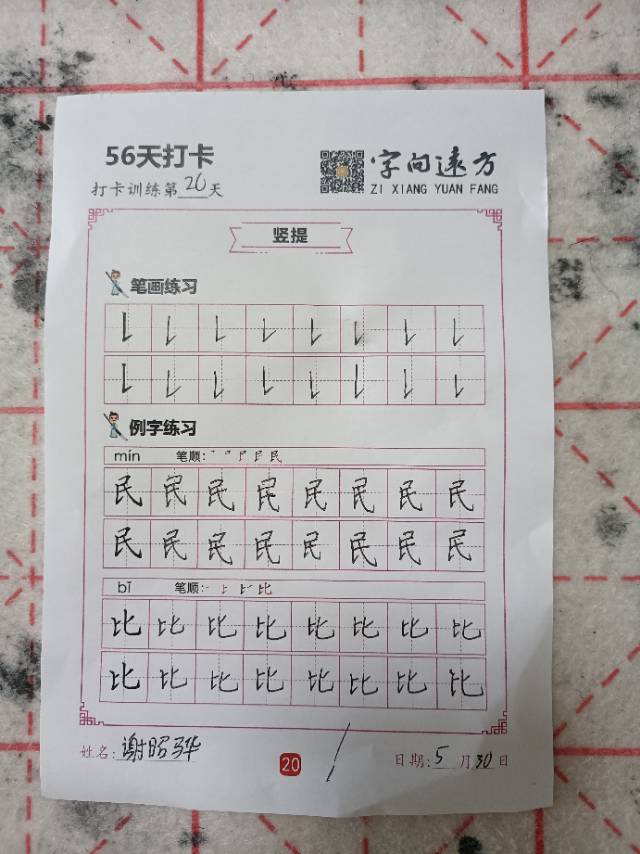 56天打卡
字向远方
打卡训练第20天
ZI XIANG YUAN FANG
竖提
笔画练习
例字练习
mín 笔顺:
民民民民民民民民
民民民民民民民民
bǐ 笔顺:
比比比比比比比比
比比比比比比比比
姓名:谢昭骅
20
日期:5月30日